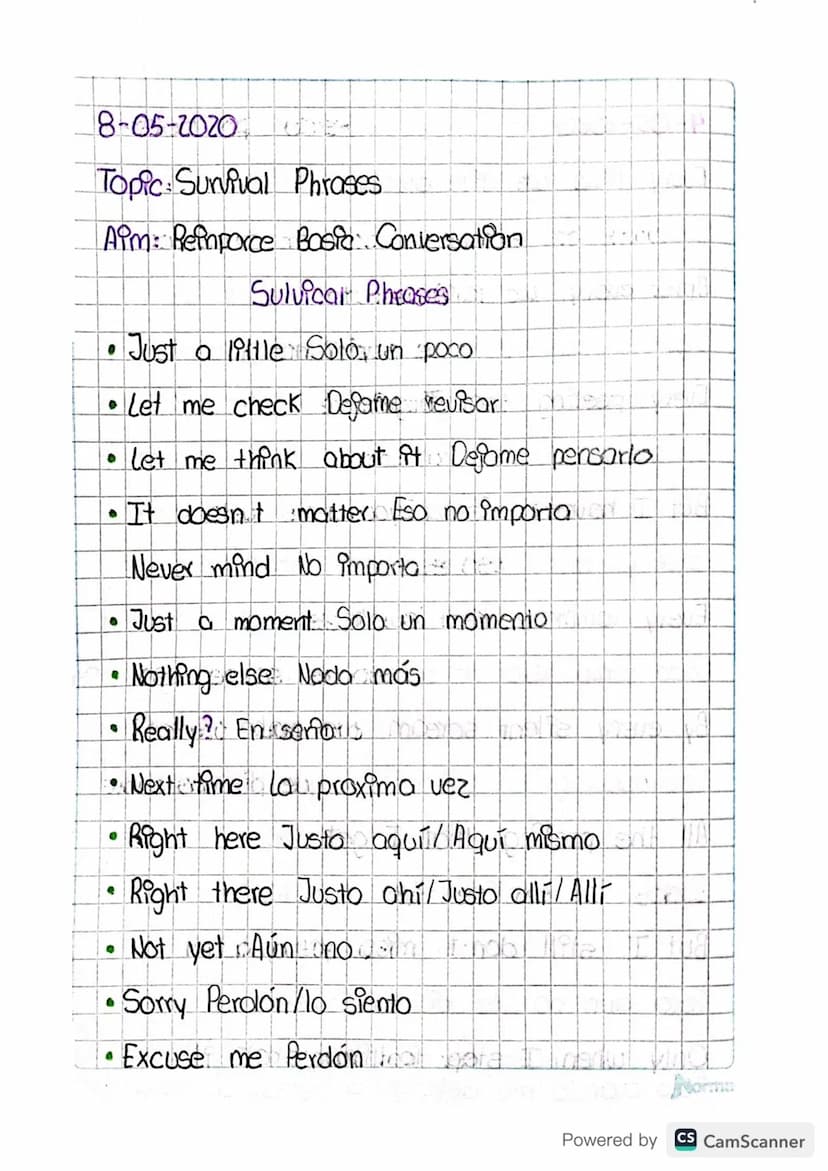 8-05-2020
Topic: Survival Phrases
Aim: Reinforce Basic Conversation
Sulvical Phrases
• Just a little Solo un poco
• Let me check Dejame revisar
• Let me think about it Dejame pensarlo
• It doesn't matter Eso no importa
Never mind No importa
• Just a moment Solo un momento
• Nothing else Nada más
• Really? En serio
• Next time La proxima vez
• Right here Justo aquí/Aquí mismo
• Right there Justo ahí/Justo allí/Allí
• Not yet Aún no
• Sorry Perdón/lo siento
• Excuse me Perdón
Norma
Powered by CS CamScanner